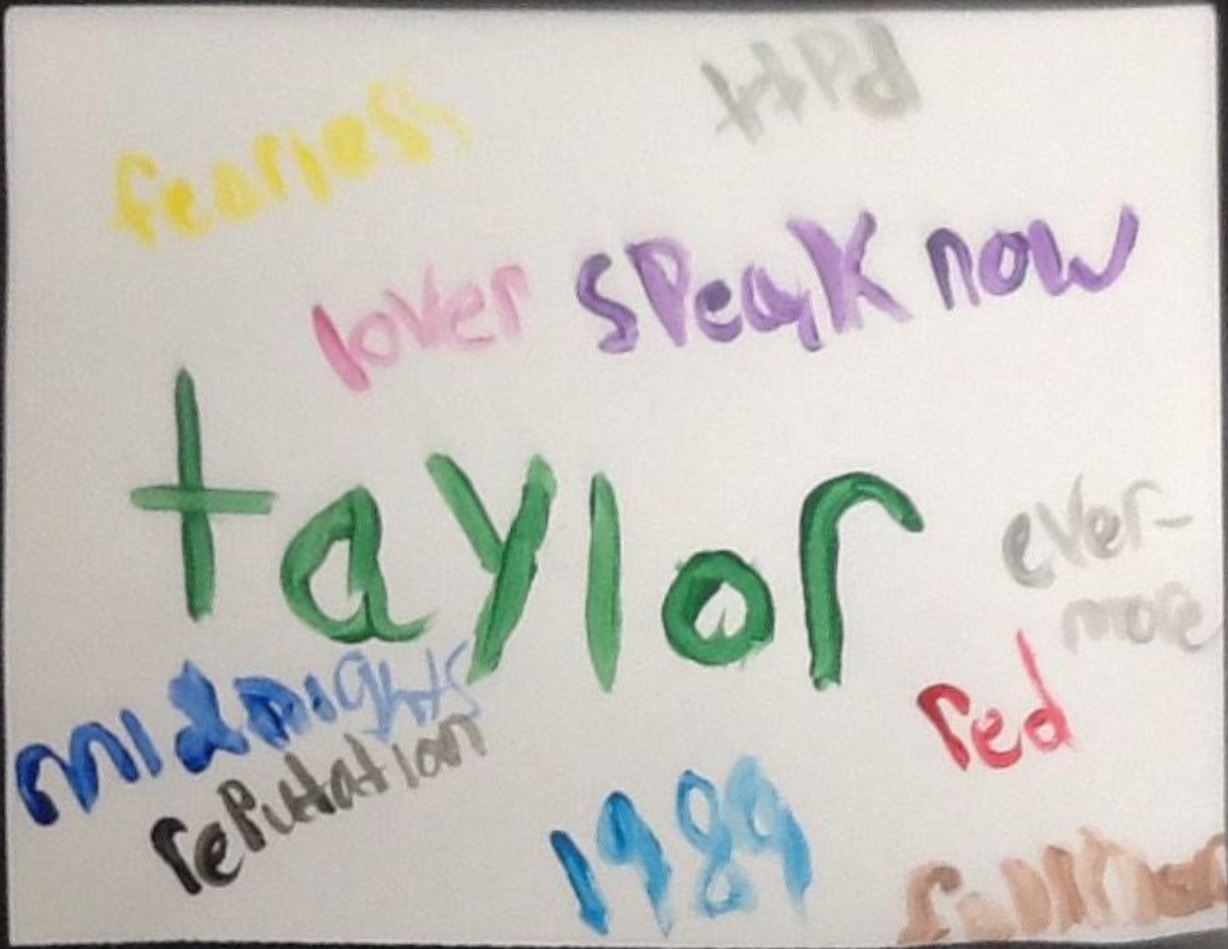 ttPd
fearless
lover sPeak now
taylor
ever-
more
midnights
red
rePutation
1989